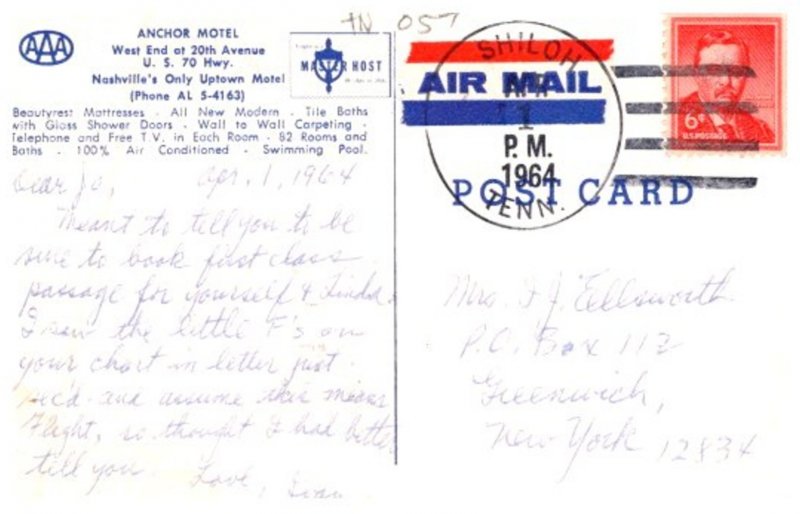 TN 057
AAA
ANCHOR MOTEL
West End at 20th Avenue
U. S. 70 Hwy.
Nashville's Only Uptown Motel
(Phone AL 5-4163)
MASTER HOST
Beautyrest Mattresses - All New Modern - Tile Baths
with Glass Shower Doors - Wall to Wall Carpeting -
Telephone and Free T.V. in Each Room - 82 Rooms and
Baths - 100% Air Conditioned - Swimming Pool.
Dear Jo, Apr. 1, 1964
Meant to tell you to be
sure to book first class
passage for yourself & Linda.
I saw the little F's on
your chart in letter just
rec'd and assume this means
Flight, so thought I had better
tell you. Love,
AIR MAIL
SHILOH
APR
1
P. M.
1964
TENN.
6¢
U.S. POSTAGE
POST CARD
Mrs. F J Ellsworth
P.O. Box 112
Greenwich,
New York 12834